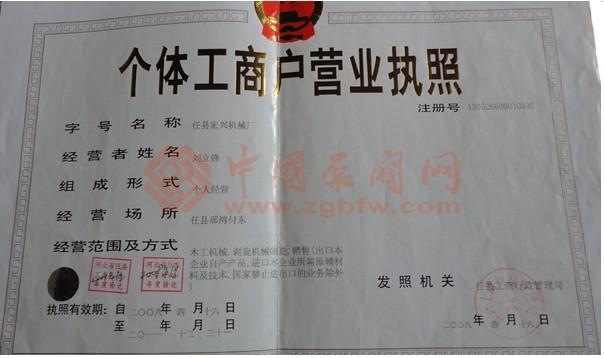 个体工商户营业执照
注册号
字号名称 任县宏兴机械厂
经营者姓名 刘立锋
组成形式 个人经营
中国泵阀网
www.zgbfw.com
经营场所 任县邢湾付东
经营范围及方式 木工机械,剥旋机械制造,销售(出口本
企业自产产品,进口本企业所需原辅材
料及技术,国家禁止进出口的业务除外
)
年度验讫
年度验讫
发照机关 任县工商行政管理局
执照有效期: 自 二〇〇八年 四月十六日
至 二〇一一年 十二月三十一日
二〇〇八年 四月十六日